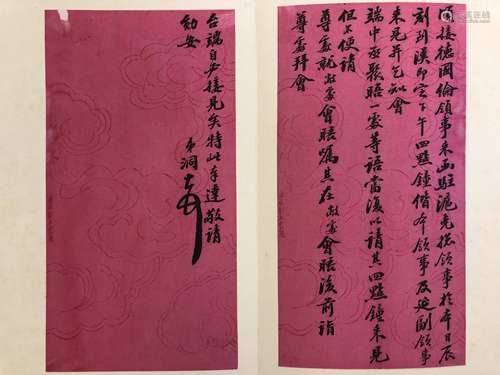 頃接德国倫領事来函駐滬克總領事於本日辰
刻到漢即定下午四點鐘偕本領事及副領事
来見并乞知會
端中丞晤一處等語當復以請其四點鐘来見
但不便請
尊處就敝處會晤囑其在敝處會晤後前詣
尊處拜會
台端自必接見矣特此奉達敬請
勛安
弟洞